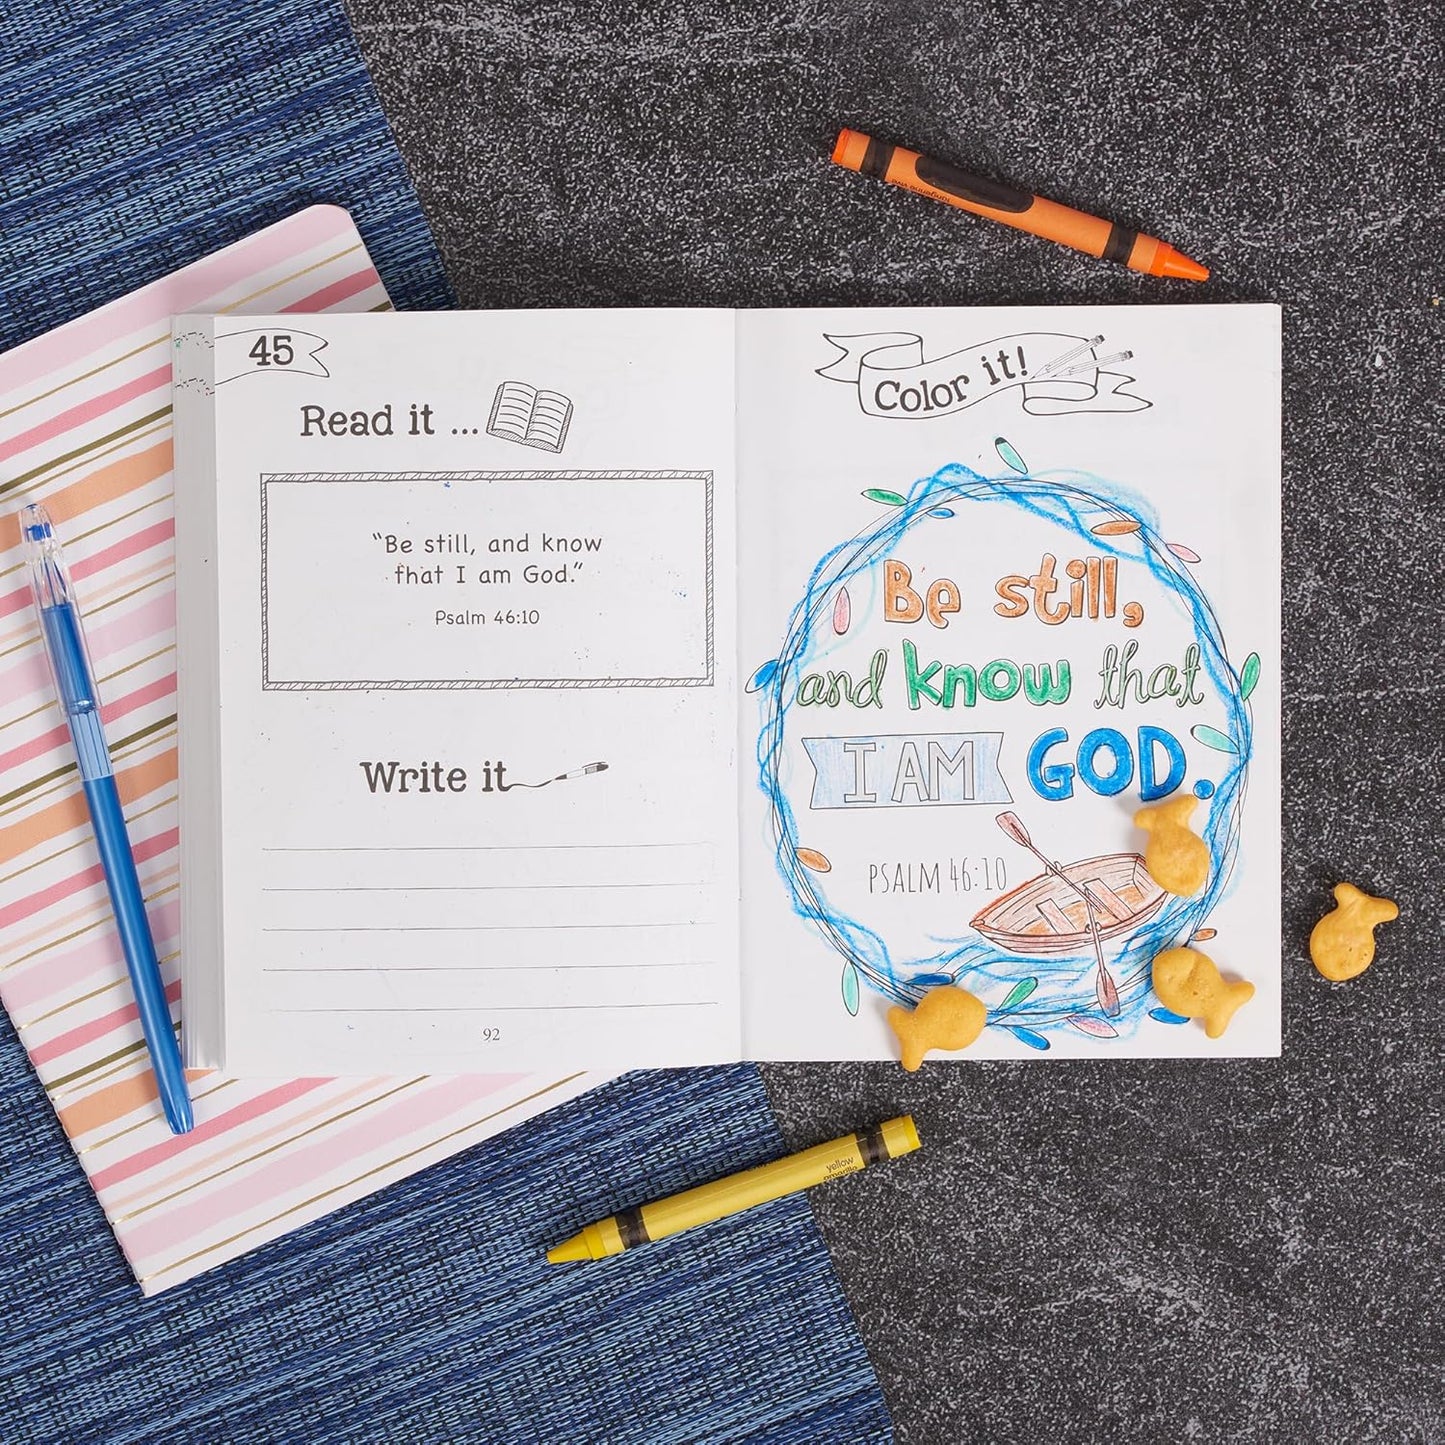 45
Read it ...
"Be still, and know
that I am God."
Psalm 46:10
Write it
92
Color it!
Be still,
and know that
I AM GOD.
PSALM 46:10
yellow